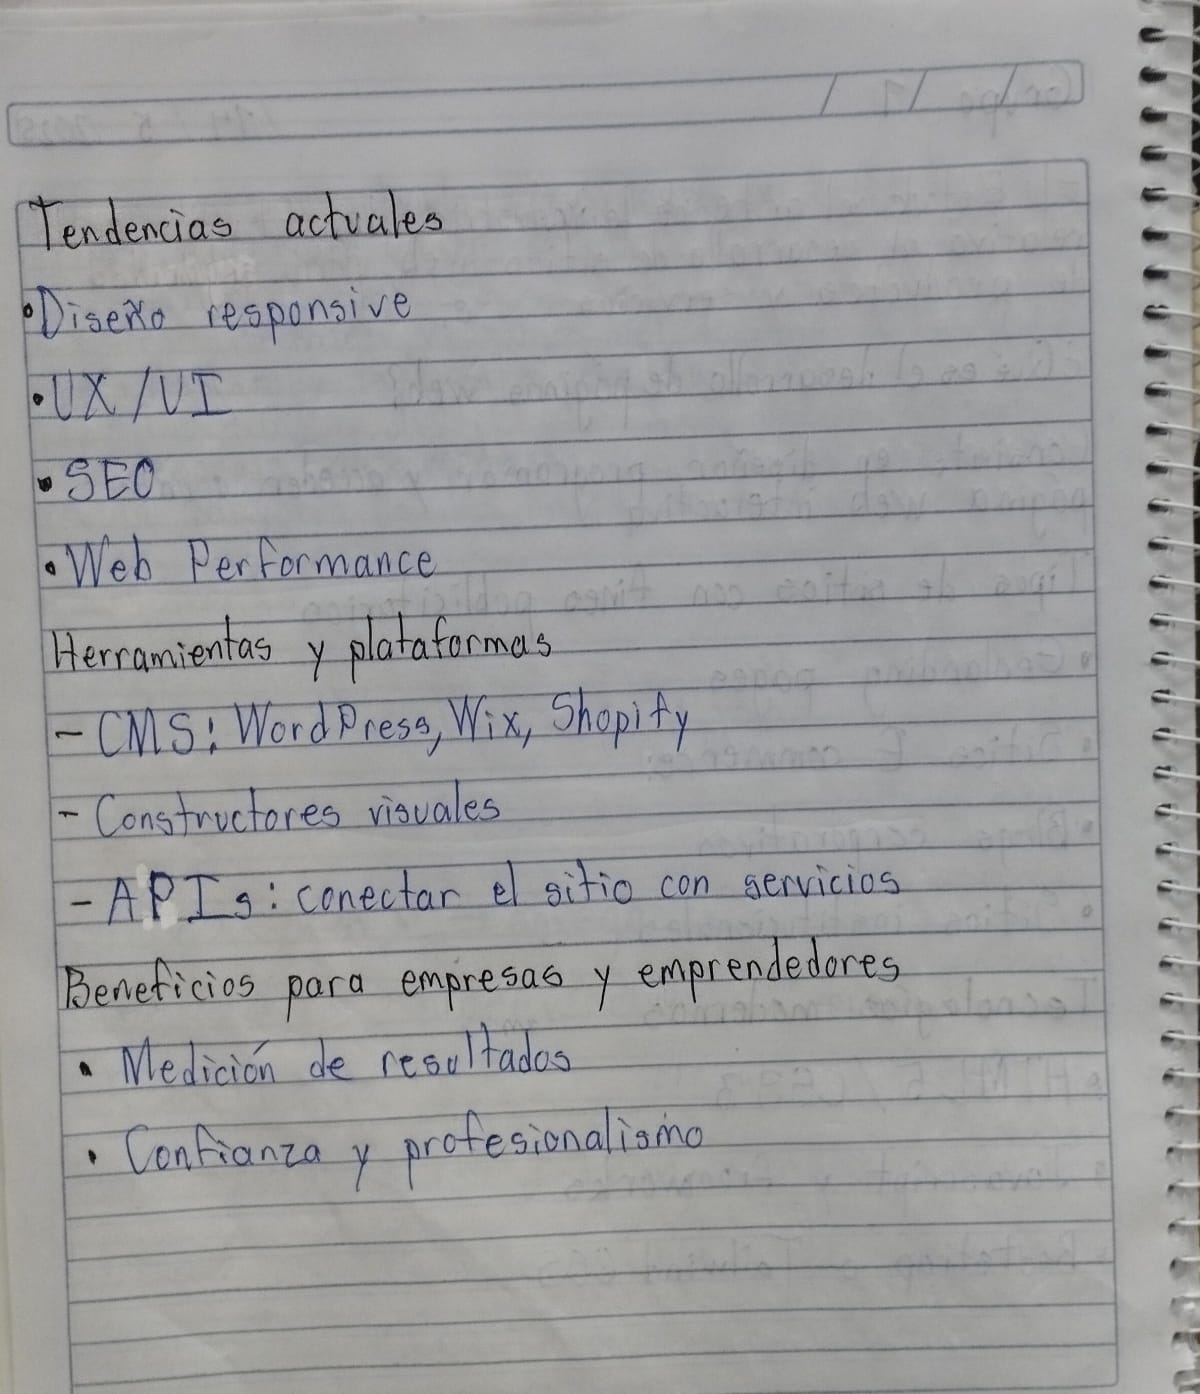 Tendencias actuales
• Diseño responsive
• UX/UI
• SEO
• Web Performance
Herramientas y plataformas
- CMS: WordPress, Wix, Shopify
- Constructores visuales
- APIs: conectar el sitio con servicios
Beneficios para empresas y emprendedores
• Medición de resultados
• Confianza y profesionalismo